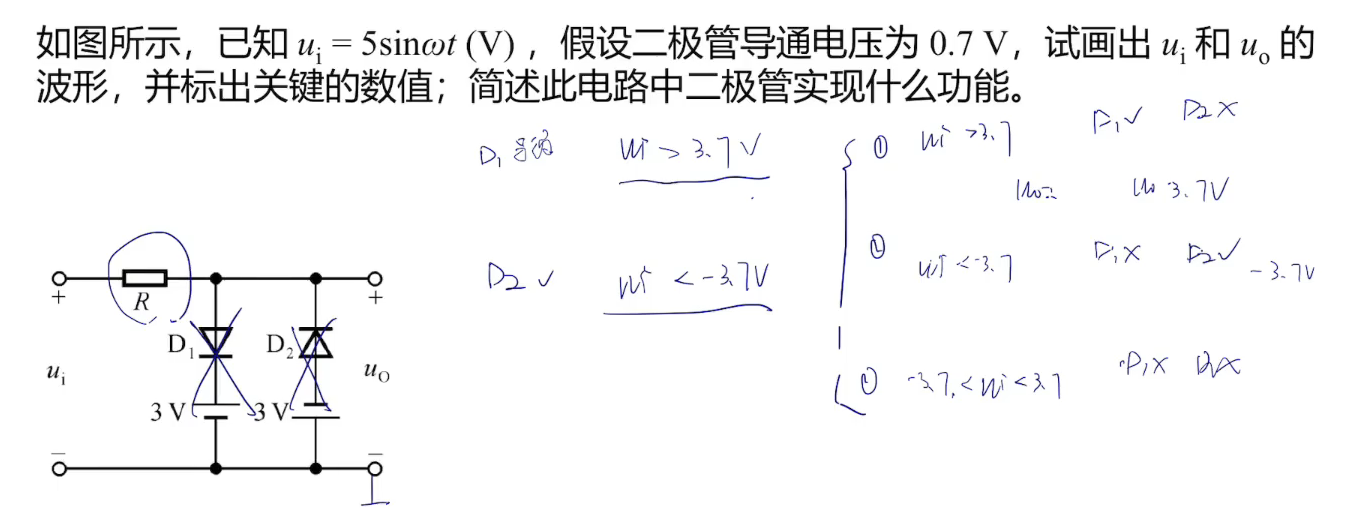 如图所示，已知 uᵢ = 5sinωt (V) ，假设二极管导通电压为 0.7 V，试画出 uᵢ 和 uₒ 的
波形，并标出关键的数值；简述此电路中二极管实现什么功能。
D₁ 导通 ui > 3.7V
① ui >3.7 D₁✓ D₂×
uo= uo 3.7V
D₂ ✓ ui < -3.7V
ui < -3.7 D₁× D₂✓ -3.7V
-3.7 < ui < 3.7 D₁× D₂×
+ R +
D₁ D₂
uᵢ uO
3 V 3 V
− −